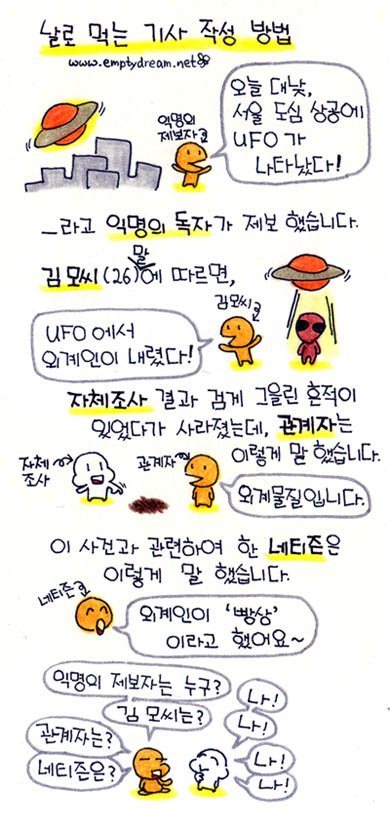 날로 먹는 기사 작성 방법
www.emptydream.net
익명의
제보자
오늘 대낮,
서울 도심 상공에
UFO가
나타났다!
...라고 익명의 독자가 제보 했습니다.
말
김모씨(26)에 따르면,
김모씨
UFO에서
외계인이 내렸다!
자체조사 결과 검게 그을린 흔적이
있었다가 사라졌는데, 관계자는
이렇게 말 했습니다.
자체
조사
관계자
외계물질입니다.
이 사건과 관련하여 한 네티즌은
이렇게 말 했습니다.
네티즌
외계인이 '빵상'
이라고 했어요~
익명의 제보자는 누구?
나!
김 모씨는?
나!
관계자는?
나!
네티즌은?
나!